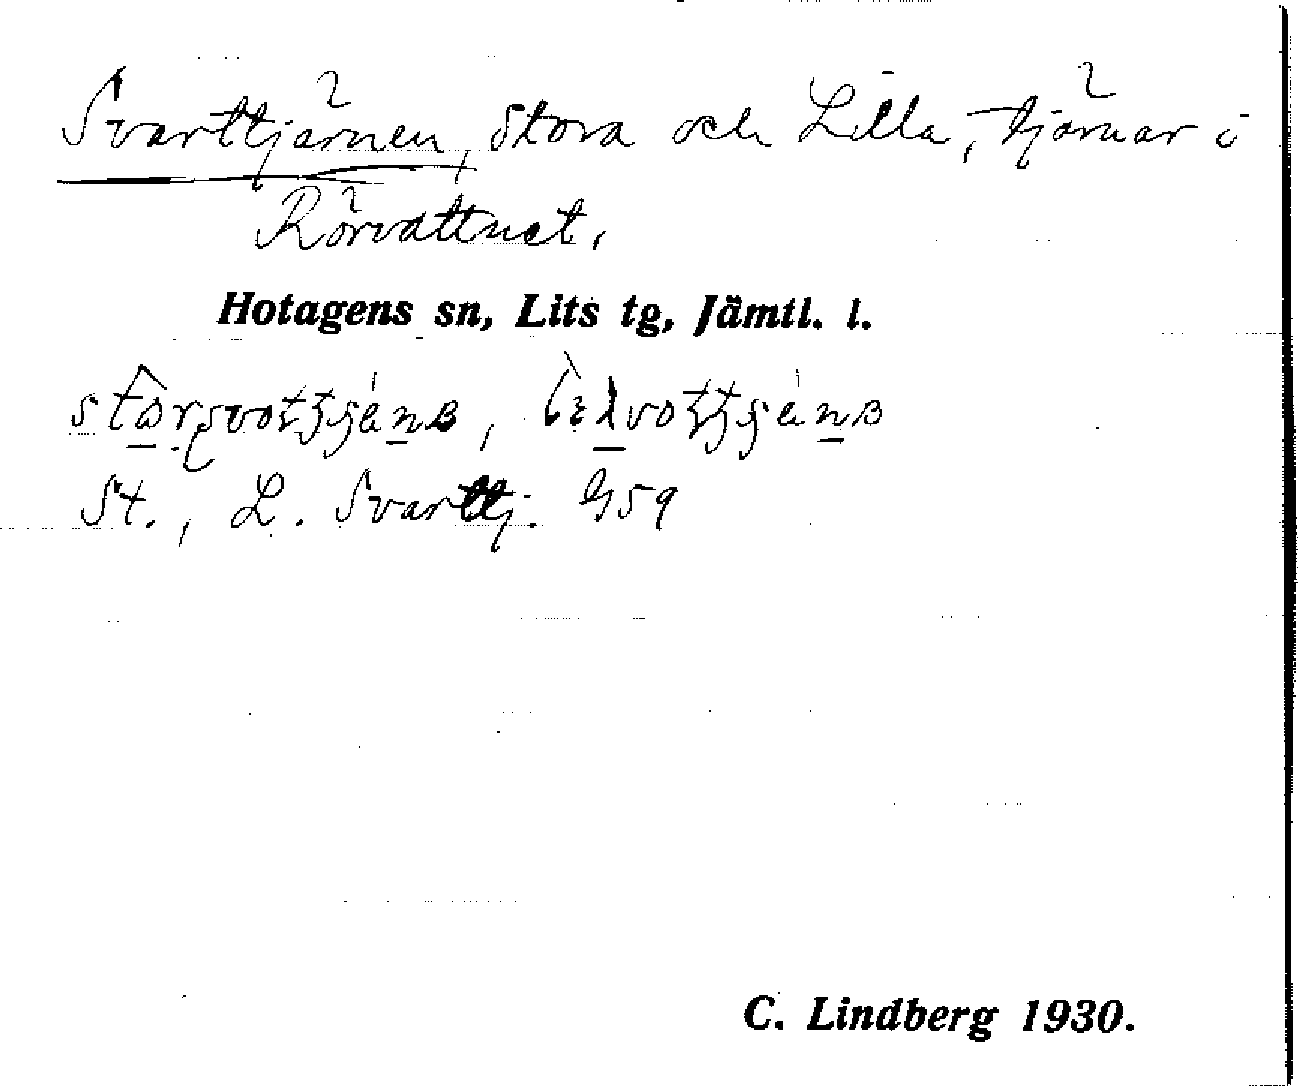 Svarttjärnen, Stora och Lilla, tjärnar i
Rörvattnet.
Hotagens sn, Lits tg, Jämtl. l.
St., L. Svarttj. G59
C. Lindberg 1930.